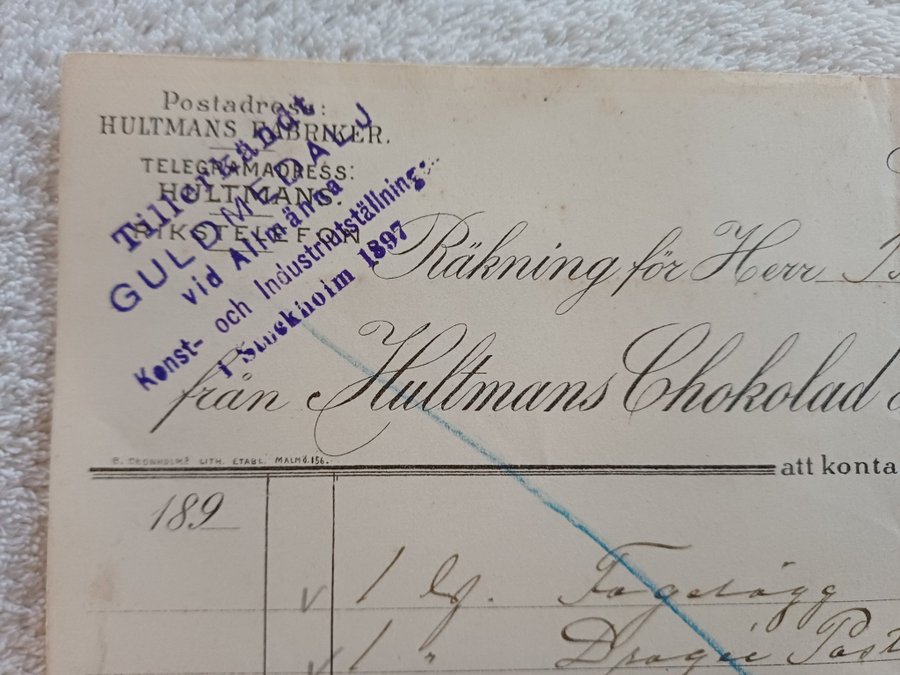 Postadress:
HULTMANS FABRIKER.
TELEGRAMADRESS:
HULTMANS.
RIKSTELEFON
Tillerkändt
GULDMEDALJ
vid Allmänna
Konst- och Industriutställning:
i Stockholm 1897
Räkning för Herr
från Hultmans Chokolad
B. CRONHOLMS LITH. ETABL. MALMÖ. 156.
att konta
189
v 1 Fogelägg
v 1 " Dragée Past